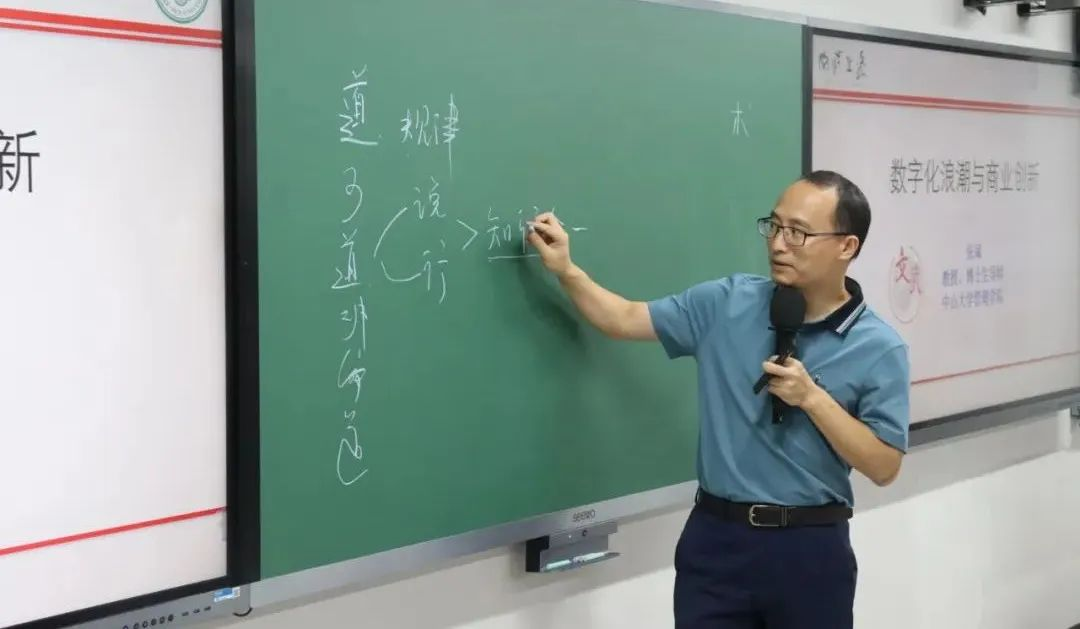 新
道可道非常道
规律
说
行
知行合一
术
SEEWO
数字化浪潮与商业创新
教授、博士生导师
中山大学管理学院